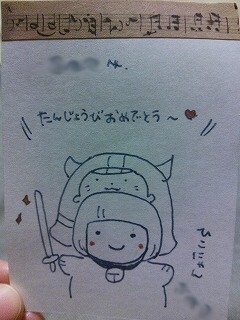 へ.
たんじょうびおめでとう〜♥
ひこにゃん